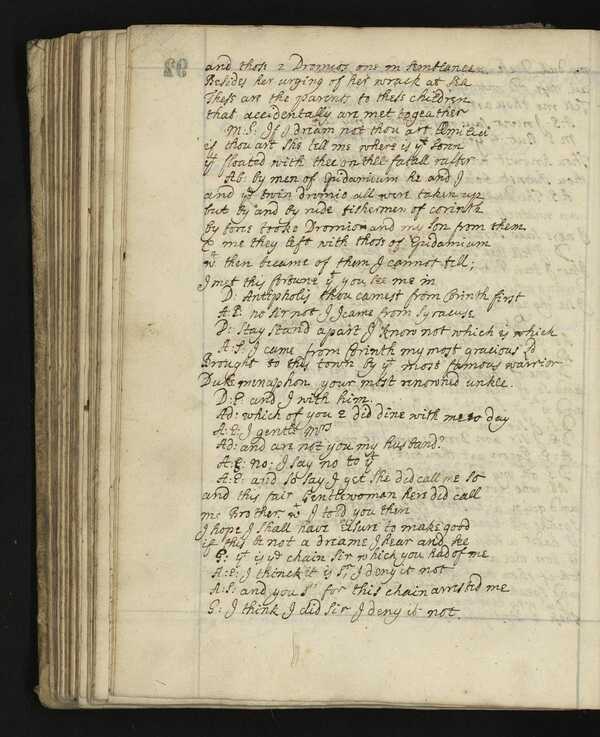 and thoss 2 Dromios one in semblance
Besides her urging of her wrack at sea
Thess are the parents to thess children
that accidentally are met togeather
M: F: If I dream not thou art Æmilia
if thou art she tell me where is yt sonn
yt floated with thee on thee fatall rafter
Ab: by men of Epidamium he and I
and ye twin dromio all were taken up
but by and by rude fishermen of corinth
by force tooke Dromio and my son from them
& me they left with thoss of Epidamium
wt then became of them I cannot tell;
I met this fortune yt you see me in
D: Antipholis thou camest from Corinth first
A: S: no sir not I I came from Syracuse
D: stay stand apart I know not which is which
A: E: I came from Corinth my most gracious Ld
Brought to this town by yt most famous warrior
Duke menaphon your most renowned unkle.
D: E: and I with him.
Ad: which of you 2 did dine with me to day
A: S: I gentle Mrs
Ad: and are not you my husband?
A: E: no; I say no to yt
A: S: and so say I yet she did call me so
and this fair Gentlewoman here did call
me Brother, wt I told you then
I hope I shall have leisure to make good
if this be not a dreame I hear and see
G: yt is ye chain sir which you had of me
A: S: I thinck it is Sr I deny it not
A: E: and you Sr for this chain arrested me
G: I think I did sir I deny it not.
92